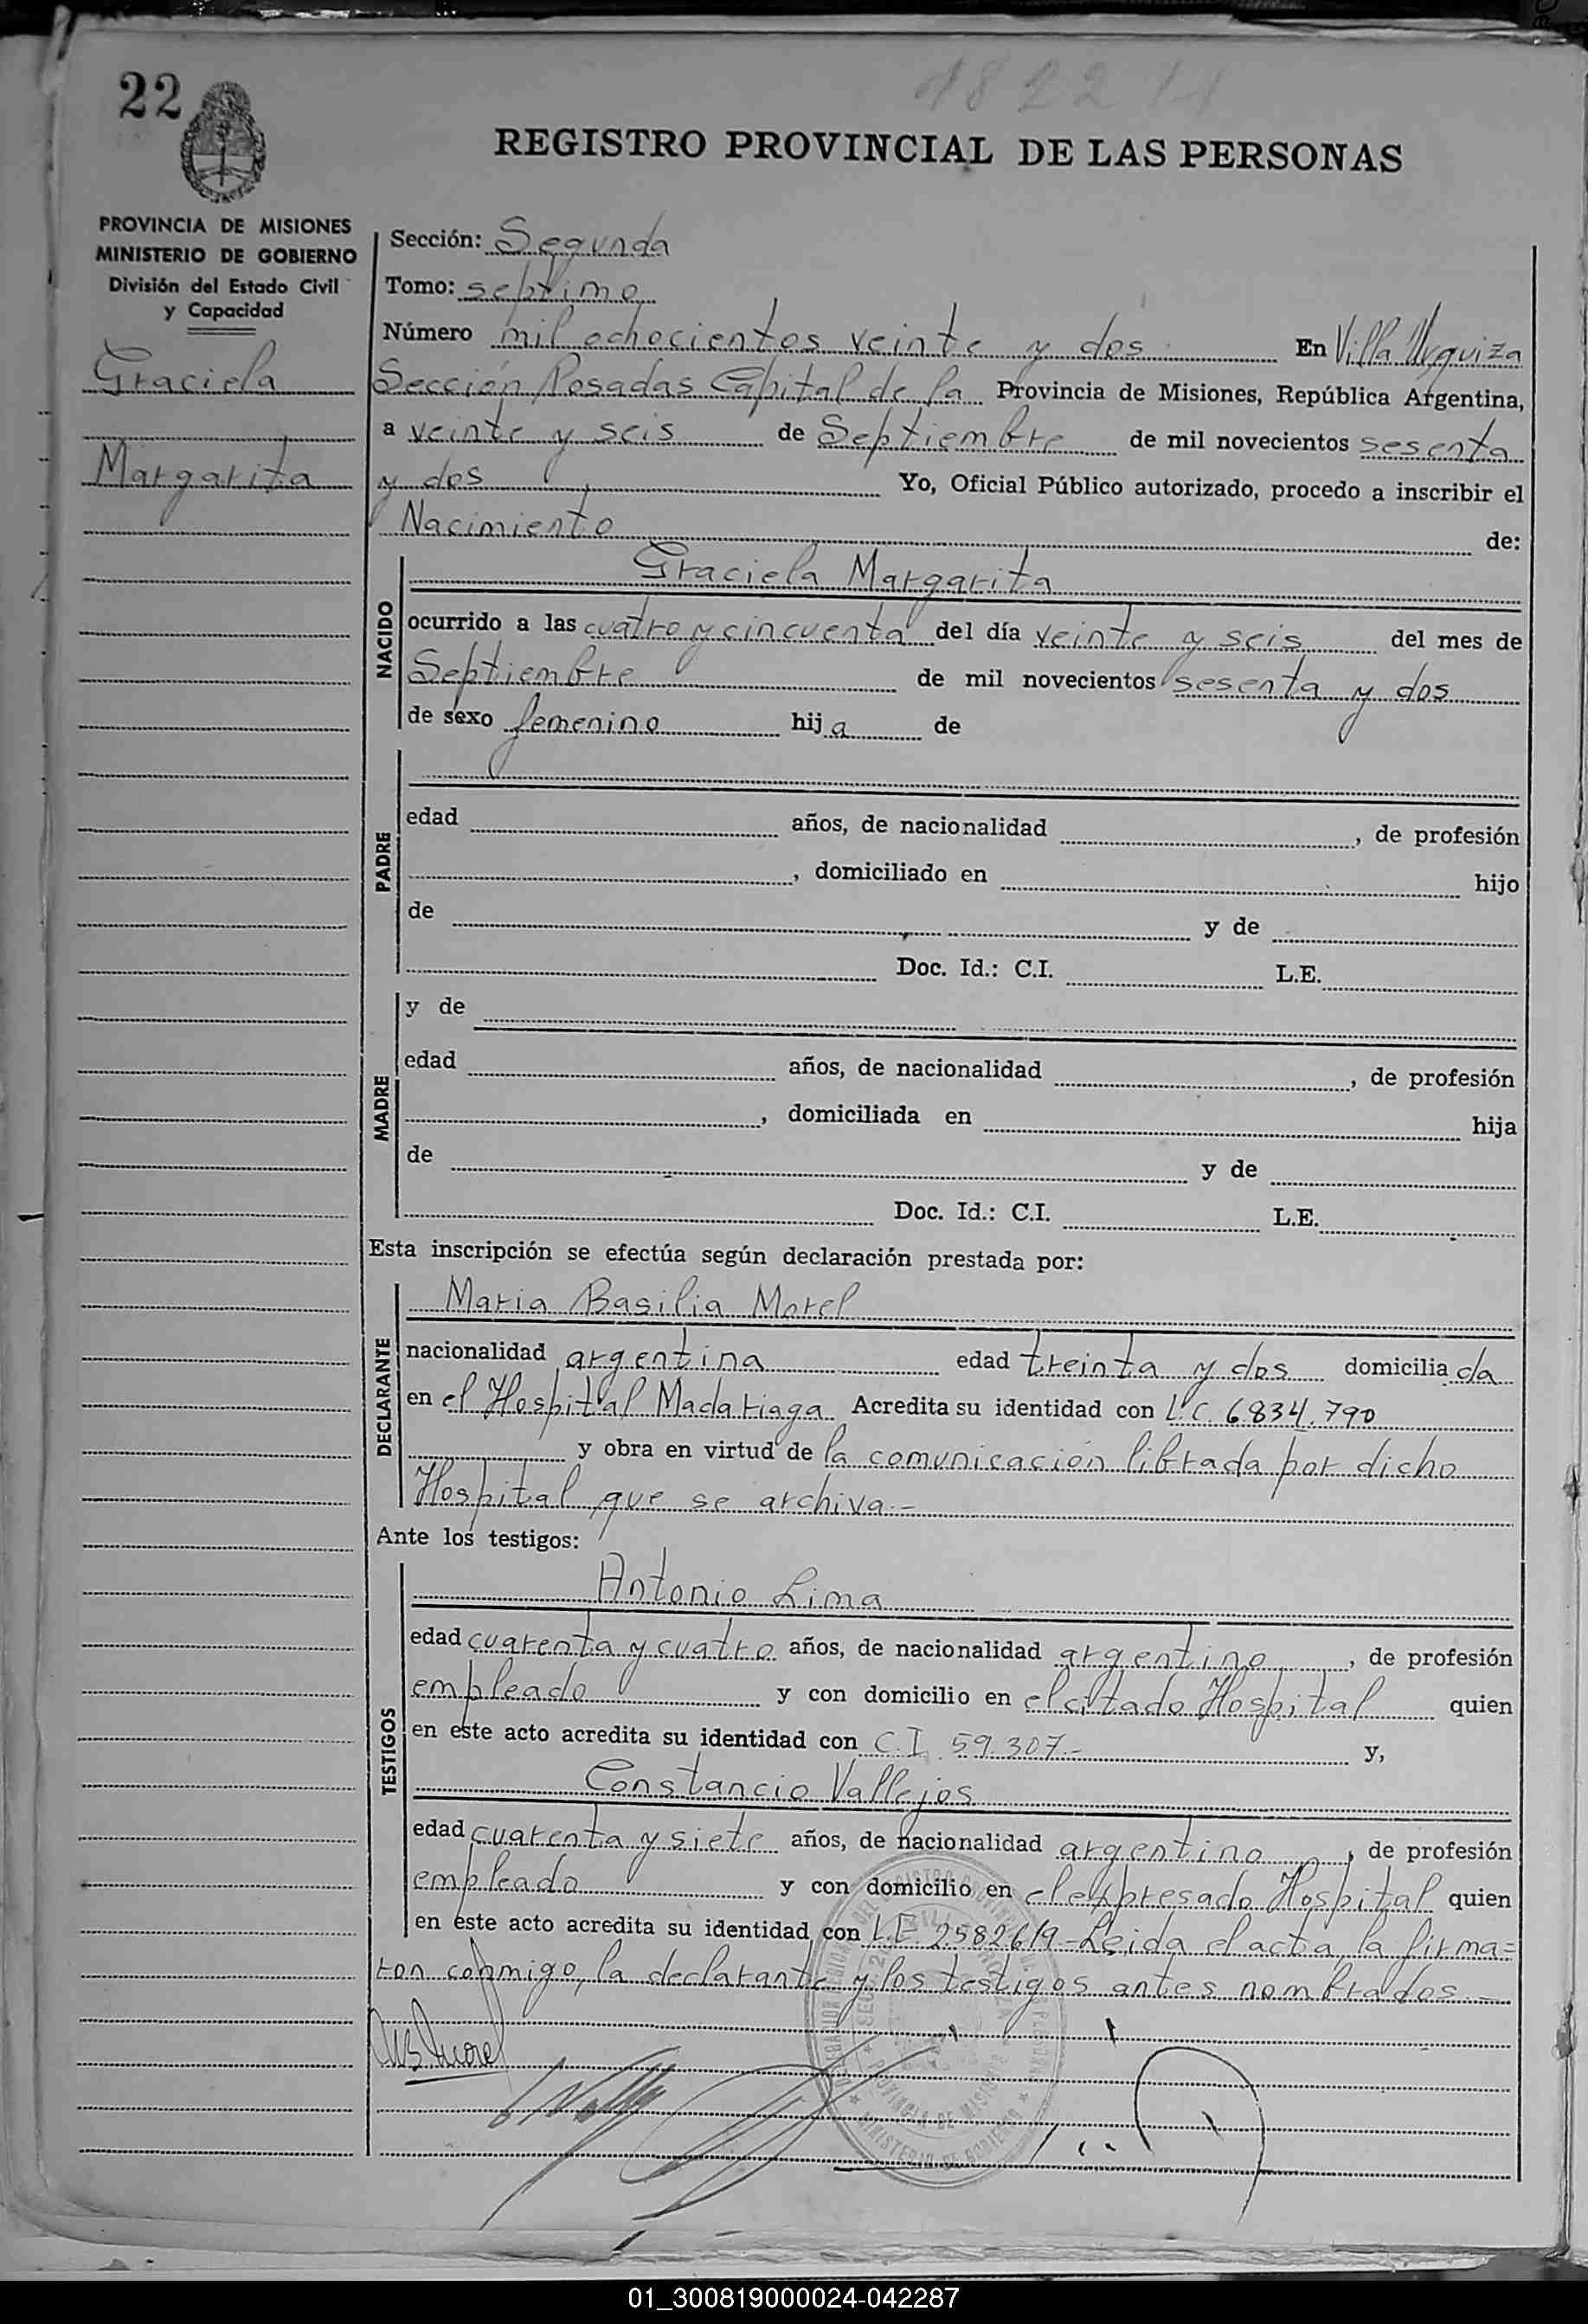 22
REGISTRO PROVINCIAL DE LAS PERSONAS
PROVINCIA DE MISIONES
MINISTERIO DE GOBIERNO
División del Estado Civil
y Capacidad
Graciela
Margarita
Sección: Segunda
Tomo: septimo
Número mil ochocientos veinte y dos En Villa Urquiza
Sección Posadas Capital de la Provincia de Misiones, República Argentina,
a veinte y seis de Septiembre de mil novecientos sesenta
y dos Yo, Oficial Público autorizado, procedo a inscribir el
Nacimiento de:
NACIDO
Graciela Margarita
ocurrido a las cuatro y cincuenta del día veinte y seis del mes de
Septiembre de mil novecientos sesenta y dos
de sexo femenino hija de
PADRE
edad años, de nacionalidad , de profesión
, domiciliado en hijo
de y de
Doc. Id.: C.I. L.E.
MADRE
y de
edad años, de nacionalidad , de profesión
, domiciliada en hija
de y de
Doc. Id.: C.I. L.E.
Esta inscripción se efectúa según declaración prestada por:
DECLARANTE
Maria Basilia Morel
nacionalidad argentina edad treinta y dos domiciliada
en el Hospital Madariaga Acredita su identidad con L.C. 6.834.790
y obra en virtud de la comunicación librada por dicho
Hospital que se archiva.-
Ante los testigos:
TESTIGOS
Antonio Lima
edad cuarenta y cuatro años, de nacionalidad argentino, de profesión
empleado y con domicilio en el citado Hospital quien
en este acto acredita su identidad con C.I. 59.307.- y,
Constancio Vallejos
edad cuarenta y siete años, de nacionalidad argentino, de profesión
empleado y con domicilio en el expresado Hospital quien
en este acto acredita su identidad con L.E. 2582619-Leida el acta, la firma=
ron conmigo, la declarante y los testigos antes nombrados.-
M B Morel
PROVINCIA DE MISIONES
MINISTERIO DE GOBIERNO
01_300819000024-042287